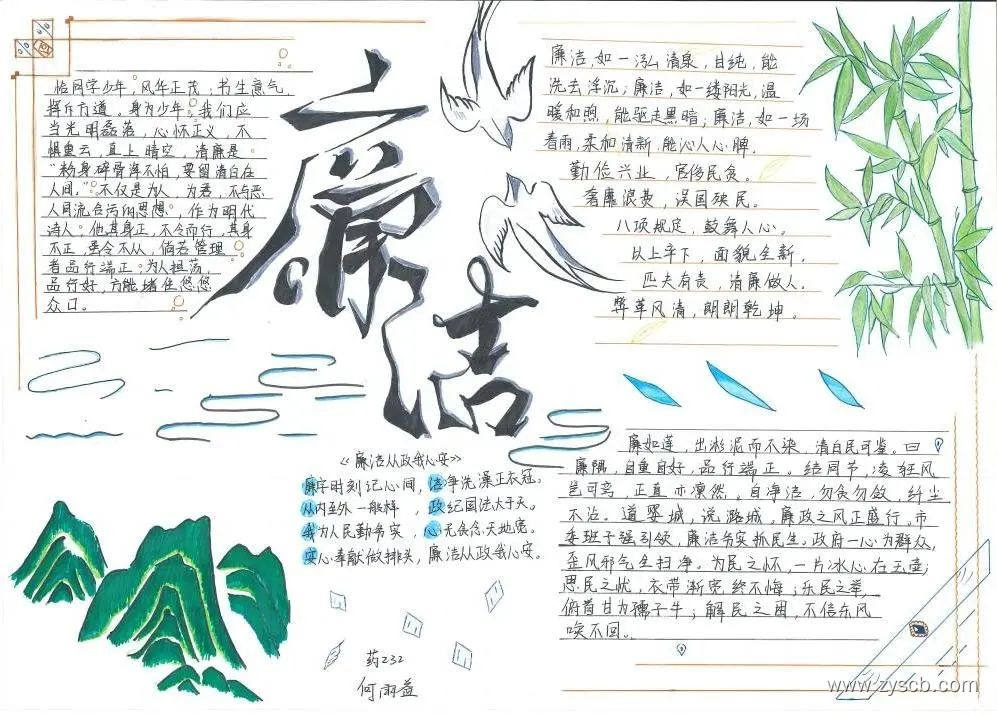 恰同学少年，风华正茂，书生意气，
挥斥方遒。身为少年，我们应
当光明磊落，心怀正义，不
惧重云，直上晴空，清廉是
“粉身碎骨浑不怕，要留清白在
人间。”不仅是为人，为君，不与恶
人同流合污的思想，作为明代
诗人。他其身正，不令而行，其身
不正，虽令不从，倘若管理
者品行端正，为人坦荡，
品行好，方能堵住悠悠
众口。
廉洁
廉洁，如一泓清泉，甘纯，能
洗去浮沉；廉洁，如一缕阳光，温
暖和煦，能驱走黑暗；廉洁，如一场
春雨，柔和清新，能沁人心脾。
勤俭兴业，官俗民食。
奢靡浪费，误国殃民。
八项规定，鼓舞人心。
以上率下，面貌全新，
匹夫有责，清廉做人。
弊革风清，朗朗乾坤。
《廉洁从政我心安》
廉字时刻记心间，洁净洗澡正衣冠。
从内至外一般样，政纪国法大于天。
我为人民勤务实，心无贪念天地宽。
安心奉献做排头，廉洁从政我心安。
药232
何雨益
廉如莲，出淤泥而不染，清白民可鉴。曰
廉隅，自重自好，品行端正。结同节，凌狂风
岂可弯，正直亦凛然。自净洁，勿贪勿敛，纤尘
不沾。道婴城，说潞城。廉政之风正盛行。市
委班子强引领，廉洁务实抓民生。政府一心为群众，
歪风邪气全扫净。为民之怀，一片冰心在玉壶；
思民之忧，衣带渐宽终不悔；乐民之举，
俯首甘为孺子牛；解民之困，不信东风
唤不回。
www.zyscb.com